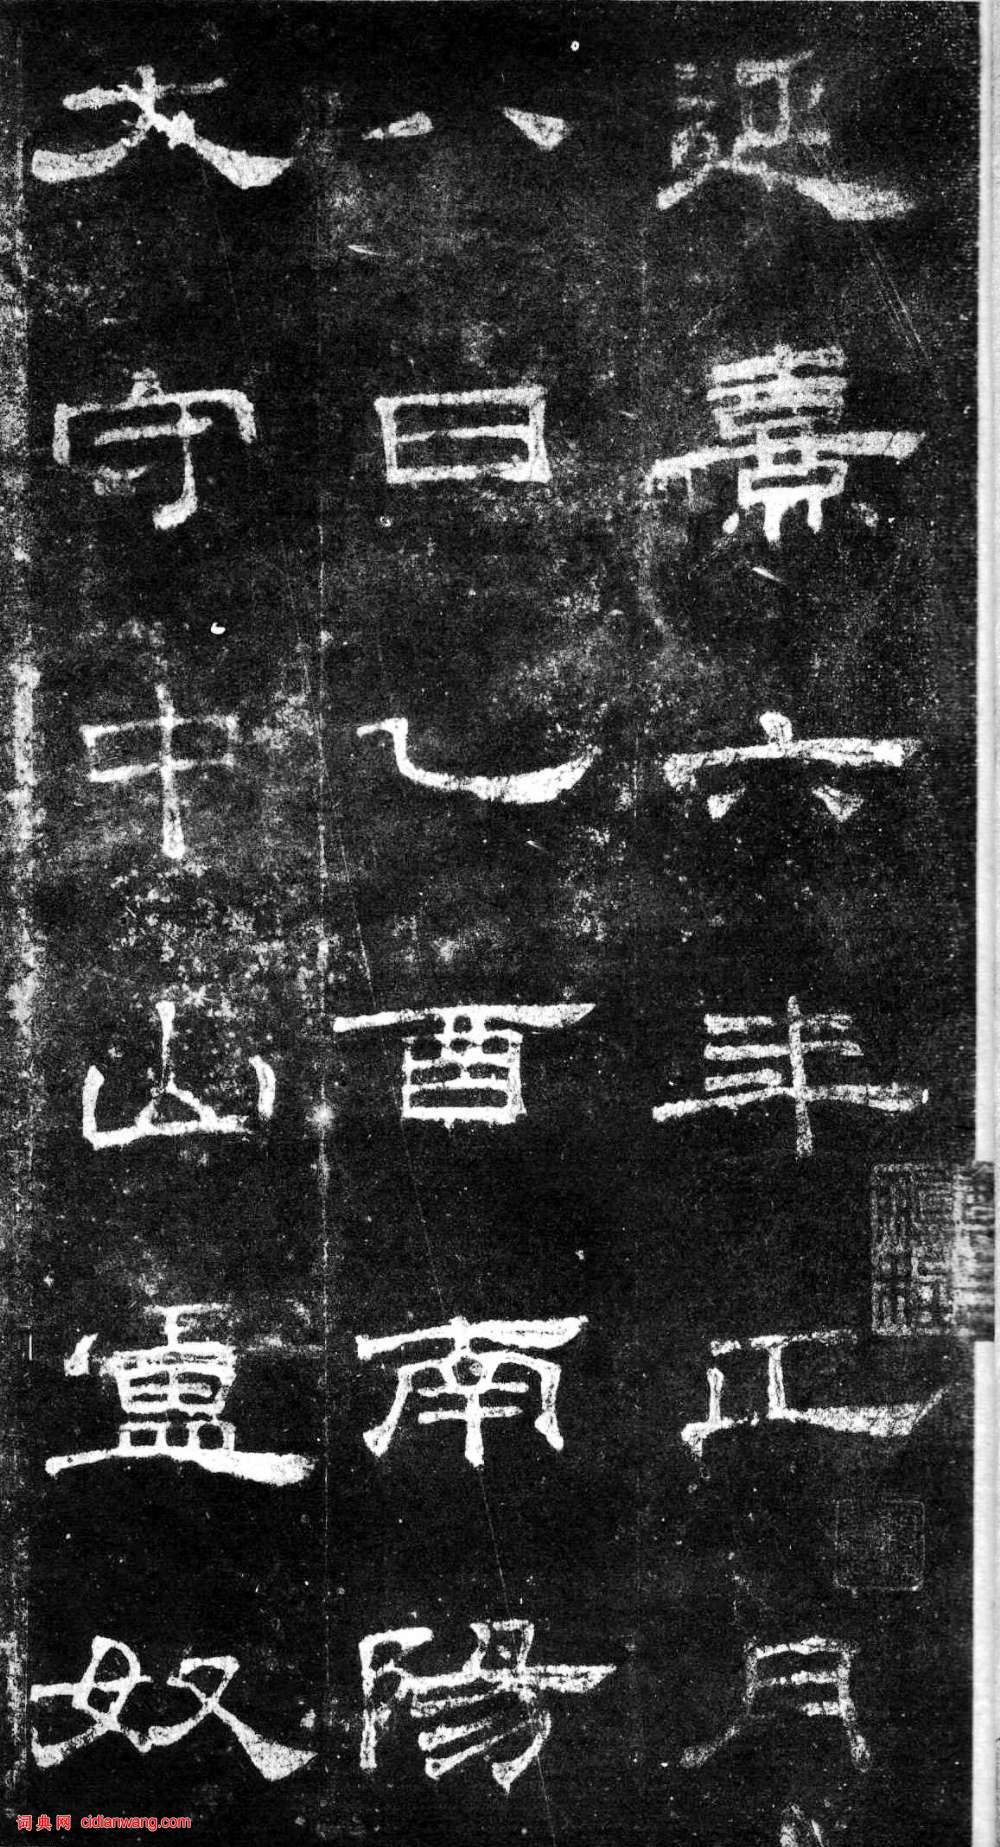 延熹六年正月
八日乙酉南陽
大守中山盧奴
词典网 cidianwang.com